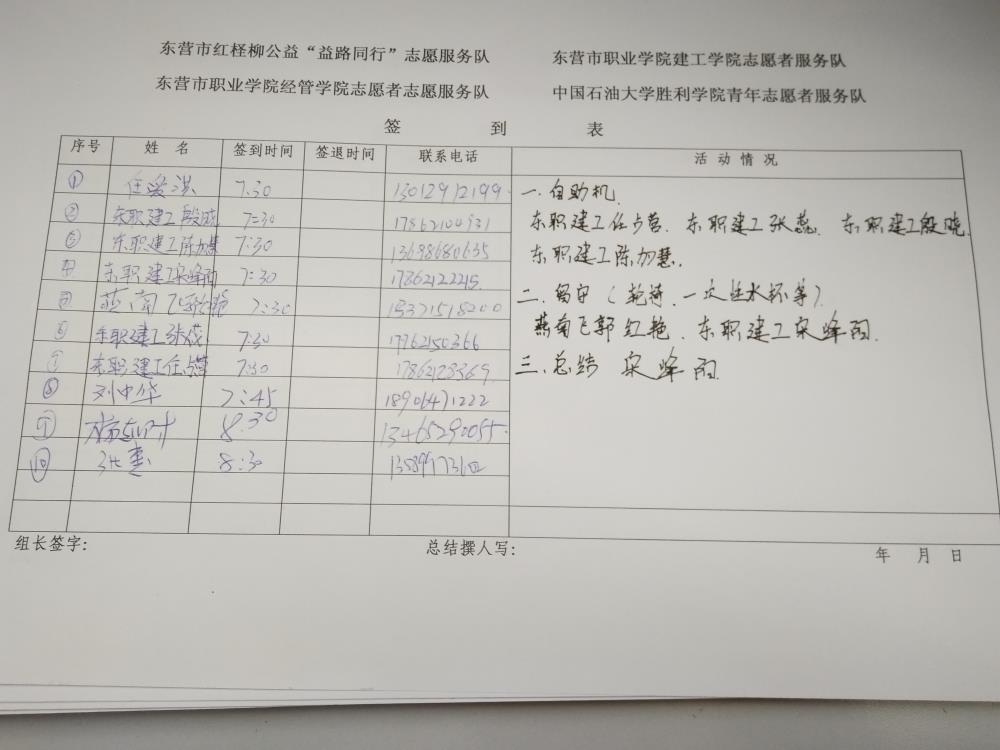 东营市红柽柳公益“益路同行”志愿服务队 东营市职业学院建工学院志愿者服务队
东营市职业学院经管学院志愿者志愿服务队 中国石油大学胜利学院青年志愿者服务队
签 到 表
序号 姓 名 签到时间 签退时间 联系电话 活动情况
① 7:30 13012912199
② 东职建工殷晓 7:30 17862100931
③ 东职建工陈加慧 7:30
④ 东职建工宋峰雨 7:30 17862122215
⑤ 燕南飞郭红艳 7:30 15371518200
⑥ 东职建工张蕊 7:30 1762150366
⑦ 东职建工任占营 7:30 17862123369
⑧ 刘中华 7:45 18906471222
⑨ 8:30 13465290055
⑩ 张惠 8:30
一.自助机
东职建工任占营. 东职建工张蕊. 东职建工殷晓.
东职建工陈加慧.
二.留守(乾涛.一次性水杯等).
燕南飞郭红艳. 东职建工宋峰雨.
三.总结 宋峰雨
组长签字: 总结撰人写: 年 月 日